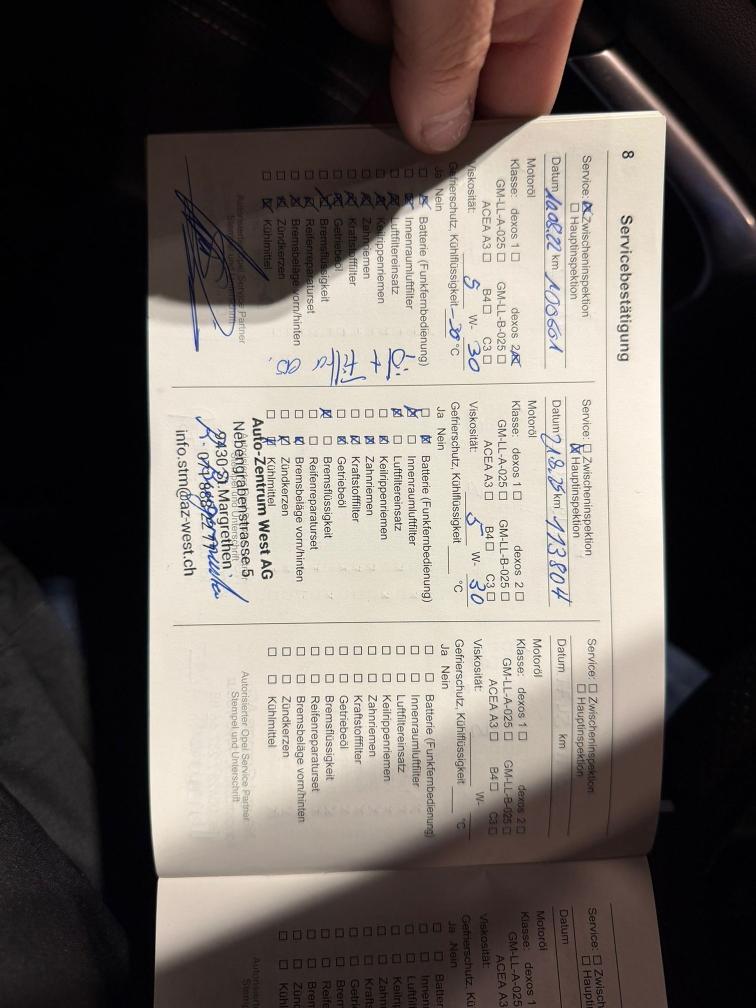 8 Servicebestätigung
Service: ☒ Zwischeninspektion
☐ Hauptinspektion
Datum 10.08.22 km 100661
Motoröl
Klasse: dexos 1 ☐ dexos 2 ☒
GM-LL-A-025 ☐ GM-LL-B-025 ☐
ACEA A3 ☐ B4 ☐ C3 ☐
Viskosität: 5 W- 30
Gefrierschutz, Kühlflüssigkeit -38 °C
Ja Nein
Batterie (Funkfernbedienung)
Innenraumluftfilter
Luftfiltereinsatz
Keilrippenriemen
Zahnriemen
Kraftstofffilter
Getriebeöl
Bremsflüssigkeit
Reifenreparaturset
Bremsbeläge vorn/hinten
Zündkerzen
Kühlmittel
Öl
+
Service: ☐ Zwischeninspektion
☒ Hauptinspektion
Datum km 113804
Motoröl
Klasse: dexos 1 ☐ dexos 2 ☐
GM-LL-A-025 ☐ GM-LL-B-025 ☐
ACEA A3 ☐ B4 ☐ C3 ☐
Viskosität: 5 W- 30
Gefrierschutz, Kühlflüssigkeit °C
Ja Nein
Batterie (Funkfernbedienung)
Innenraumluftfilter
Luftfiltereinsatz
Keilrippenriemen
Zahnriemen
Kraftstofffilter
Getriebeöl
Bremsflüssigkeit
Reifenreparaturset
Bremsbeläge vorn/hinten
Zündkerzen
Kühlmittel
Auto-Zentrum West AG
Nebengrabenstrasse 5
9430 St. Margrethen
info.stm@az-west.ch
Service: ☐ Zwischeninspektion
☐ Hauptinspektion
Datum km
Motoröl
Klasse: dexos 1 ☐ dexos 2 ☐
GM-LL-A-025 ☐ GM-LL-B-025 ☐
ACEA A3 ☐ B4 ☐ C3 ☐
Viskosität: W-
Gefrierschutz, Kühlflüssigkeit °C
Ja Nein
Batterie (Funkfernbedienung)
Innenraumluftfilter
Luftfiltereinsatz
Keilrippenriemen
Zahnriemen
Kraftstofffilter
Getriebeöl
Bremsflüssigkeit
Reifenreparaturset
Bremsbeläge vorn/hinten
Zündkerzen
Kühlmittel
Autorisierter Opel Service Partner
Stempel und Unterschrift
Service: ☐ Zwisch
☐ Haupti
Datum
Motoröl
Klasse: dexos 1
GM-LL-A-025
ACEA A3
Viskosität:
Gefrierschutz, Kü
Ja Nein
Batter
Innen
Luftf
Keilri
Zahn
Kraft
Getri
Brem
Reife
Brem
Zünd
Kühl